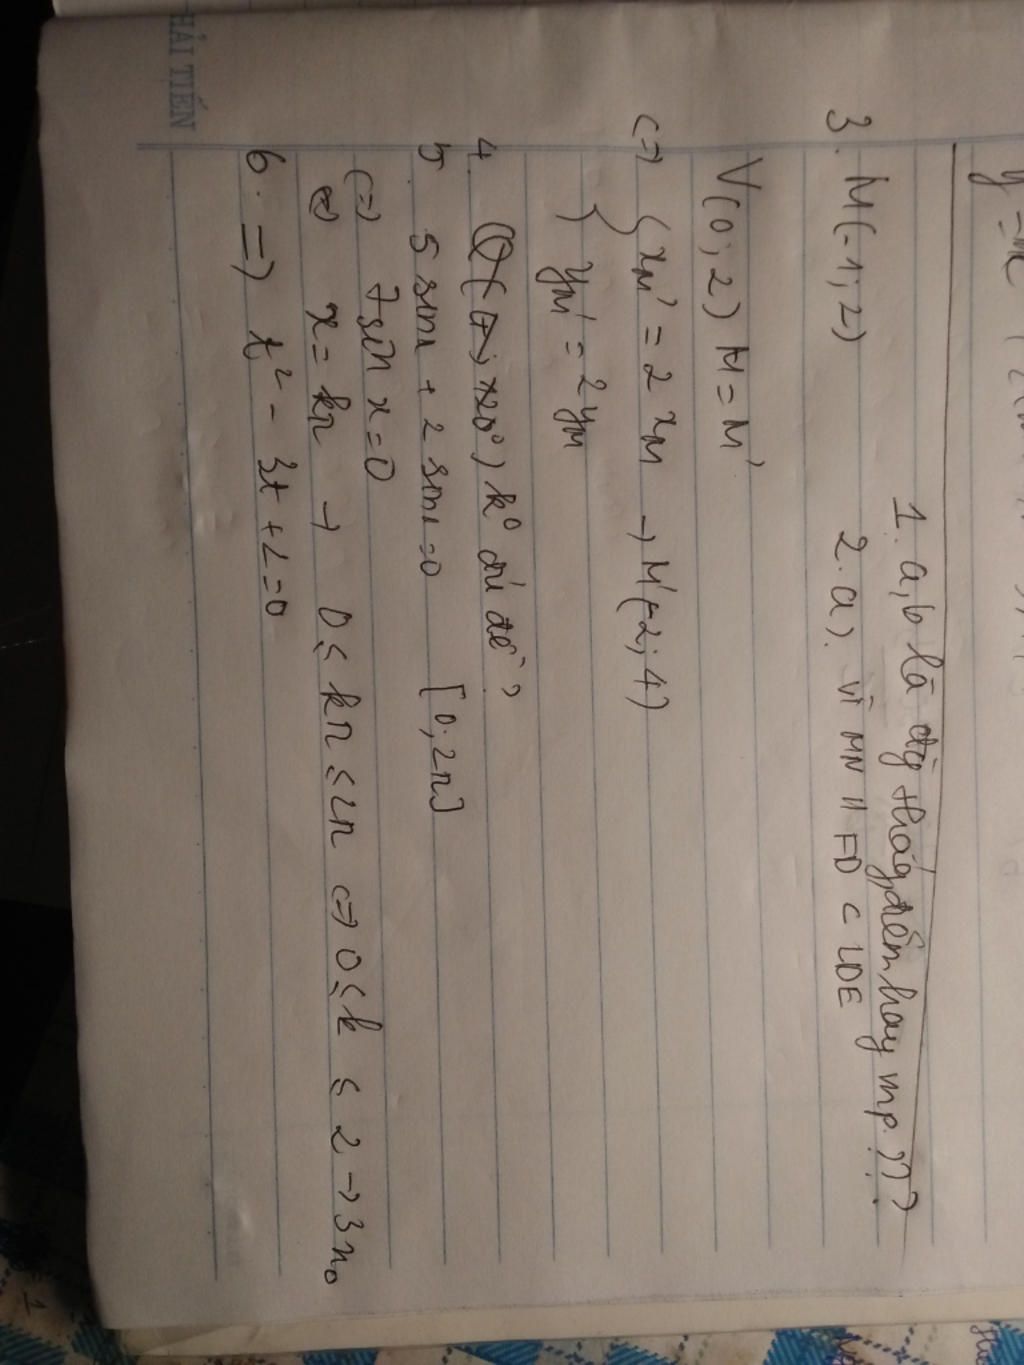 HẢI TIẾN
1. a, b là đg thẳg, điểm hay mp. ???
2. a). vì MN // FD ⊂ LDE
3. M(-1; 2)
V(0; 2) M = M'
<=> { xM' = 2 xM → M'(-2; 4)
yM' = 2 yM
4. k° đủ đề?
5. 5 sinx + 2 sinx = 0 [0; 2π]
<=> 7sin x = 0
<=> x = kπ → 0 ≤ kπ ≤ 2π <=> 0 ≤ k ≤ 2 → 3 n0
6. => t² - 3t + 2 = 0